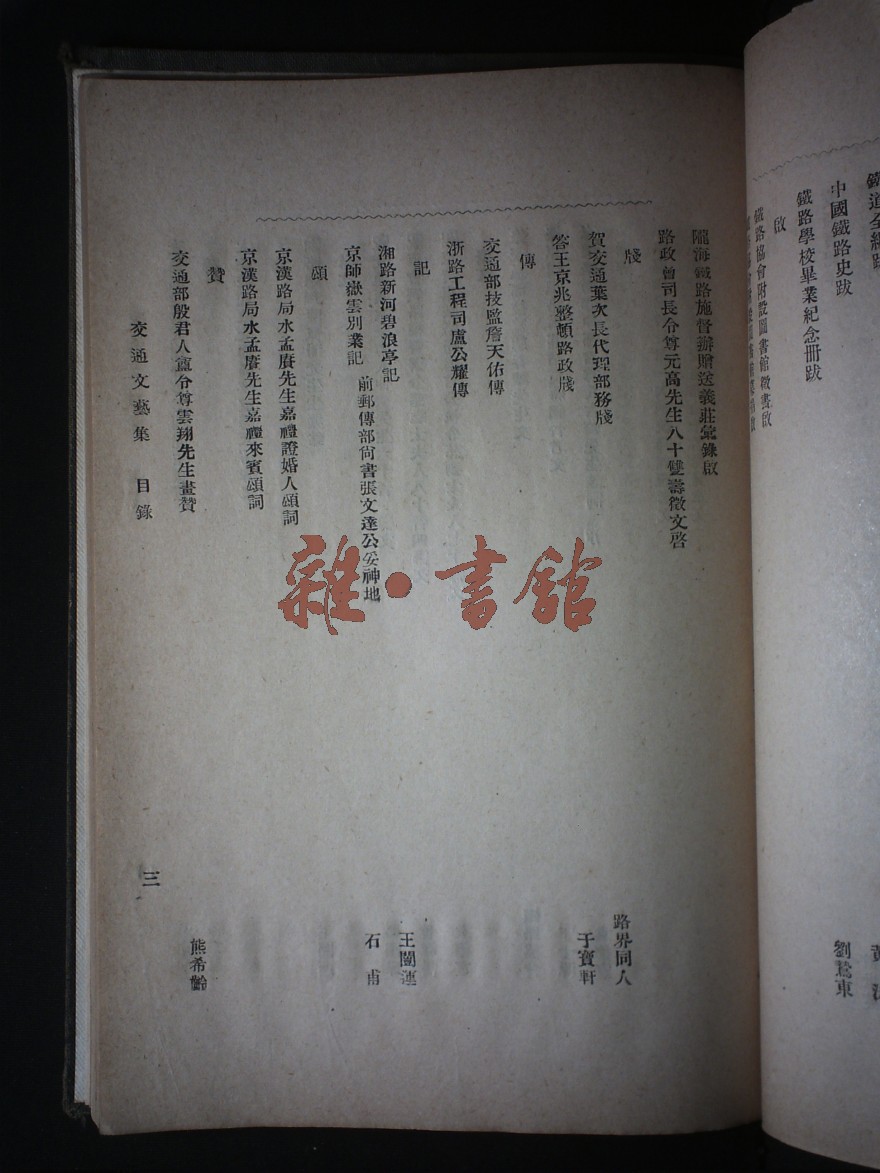 中國鐵路史跋
劉鷟東
鐵路學校畢業紀念冊跋
啟
鐵路協會附設圖書館徵書啟
隴海鐵路施督辦贈送義莊彙錄啟
路政曾司長令尊元高先生八十雙壽徵文啓
牋
賀交通葉次長代理部務牋
路界同人
答王京兆整頓路政牋
于寶軒
傳
交通部技監詹天佑傳
浙路工程司盧公耀傳
記
湘路新河碧浪亭記
王闓運
京師嶽雲別業記
前郵傳部尙書張文達公妥神地
石甫
頌
京漢路局水孟賡先生嘉禮證婚人頌詞
京漢路局水孟賡先生嘉禮來賓頌詞
贊
交通部殷君人盦令尊雲翔先生畫贊
熊希齡
交通文藝集 目錄
三
雜·書館